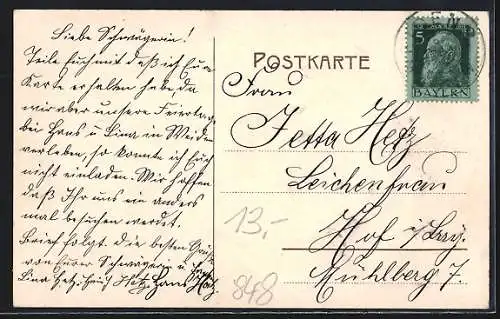 Liebe Schwägerin!
Teile Euch mit daß ich Eure
Karte erhalten habe da
wir aber unsere Feiertage
bei Hans u Lina in Weiden
verleben, so konnte ich Euch
nicht einladen. Wir hoffen
daß Ihr uns ein anders
mal besuchen werdet.
Brief folgt. die besten Grüße
von Eurer Schwägerin u
Lina Hetz, Hans Hetz
POSTKARTE
Frau
Jetta Hetz
Leichenfrau
Hof i/Bay.
Mühlberg 7.
5
BAYERN
13,-
848